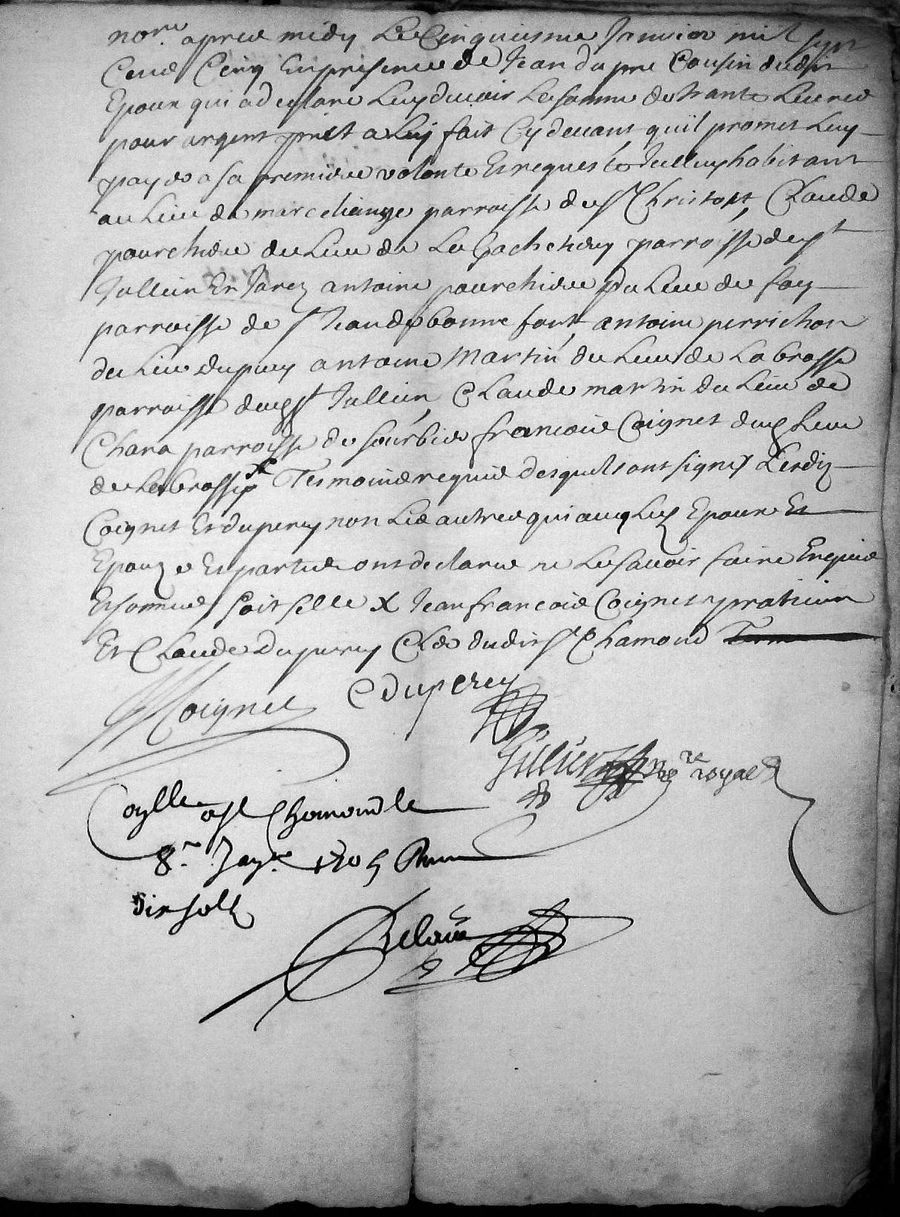 nore apres midy le cinquiesme janvier mil sept
cens cinq en presence de Jean dupre cousin dudit
Epoux qui a declare luy devoir la somme de trante livres
pour argent prest a luy fait cy devant quil promet luy
payer a sa premiere volonte et requeste Icelluy habitant
au lieu de marechange parroisse de st Christost, Claude
pourchere du lieu de la Gachetiere parroisse de st
Jullien En Jarez antoine pourchere du lieu de fay
parroisse de st Jean de bonnefont antoine perrichon
du lieu dupuy antoine Martin du lieu de la brosse
parroisse dud st Jullien, Claude martin du lieu de
Chana parroisse de sourbier francois Coignet dud lieu
de la brosse Tesmoins requis desquels ont signe lesdits
Coignet Et duperey non les autres qui avec les Epoux Et
Epouze Et parties ont declare ne le savoir faire Enquis
Et sommes soit selle X Jean francois Coignet praticien
Et Claude Duperey Clerc dudit st Chamond
Coignet CDuperey
re royal
Conlle a st Chamond le
8r Janr 1705 Reçu
dix sols
Delavis